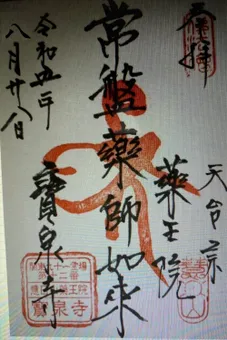 奉拝
天台宗
薬王院
常盤薬師如来
寳泉寺
令和五年
八月廿八日
寳泉寺